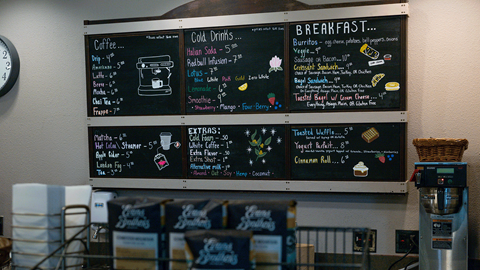 Coffee...
Drip - 4
Americano - 4
Latte - 5
Breve - 5
Mocha - 6
Chai Tea - 6
Frappe - 7
Cold Drinks...
Italian Soda - 5
Redbull Infusion - 7
Lotus - 7
Blue White Pink Gold Zero
Lemonade - 6
Smoothie - 9
Strawberry - Mango - Four-Berry
BREAKFAST...
Burritos - egg, cheese, potatoes, bell peppers, onions
Veggie - 5
Sausage or Bacon - 6
Croissant Sandwich... 9
Choice of Sausage, Bacon, Ham, Turkey, GR Chicken
Bagel Sandwich... 9
Choice of Sausage, Bacon, Ham, Turkey, GR Chicken
Toasted Bagel w/ Cream Cheese... 4
Everything, Asiago, Plain, OR Gluten Free
Matcha - 6
Hot Cocoa/ Steamer - 5
Apple Cider - 5
London Fog - 6
Tea - 4
EXTRAS:
Cold Foam - .50
White Coffee - 1
Extra Flavor - .50
Extra Shot - 1
Alternative milk - 1
Almond - Oat - Soy - Hemp - Coconut
Toasted Waffle... 5
Yogurt Parfait... 8
Cinnamon Roll... 6